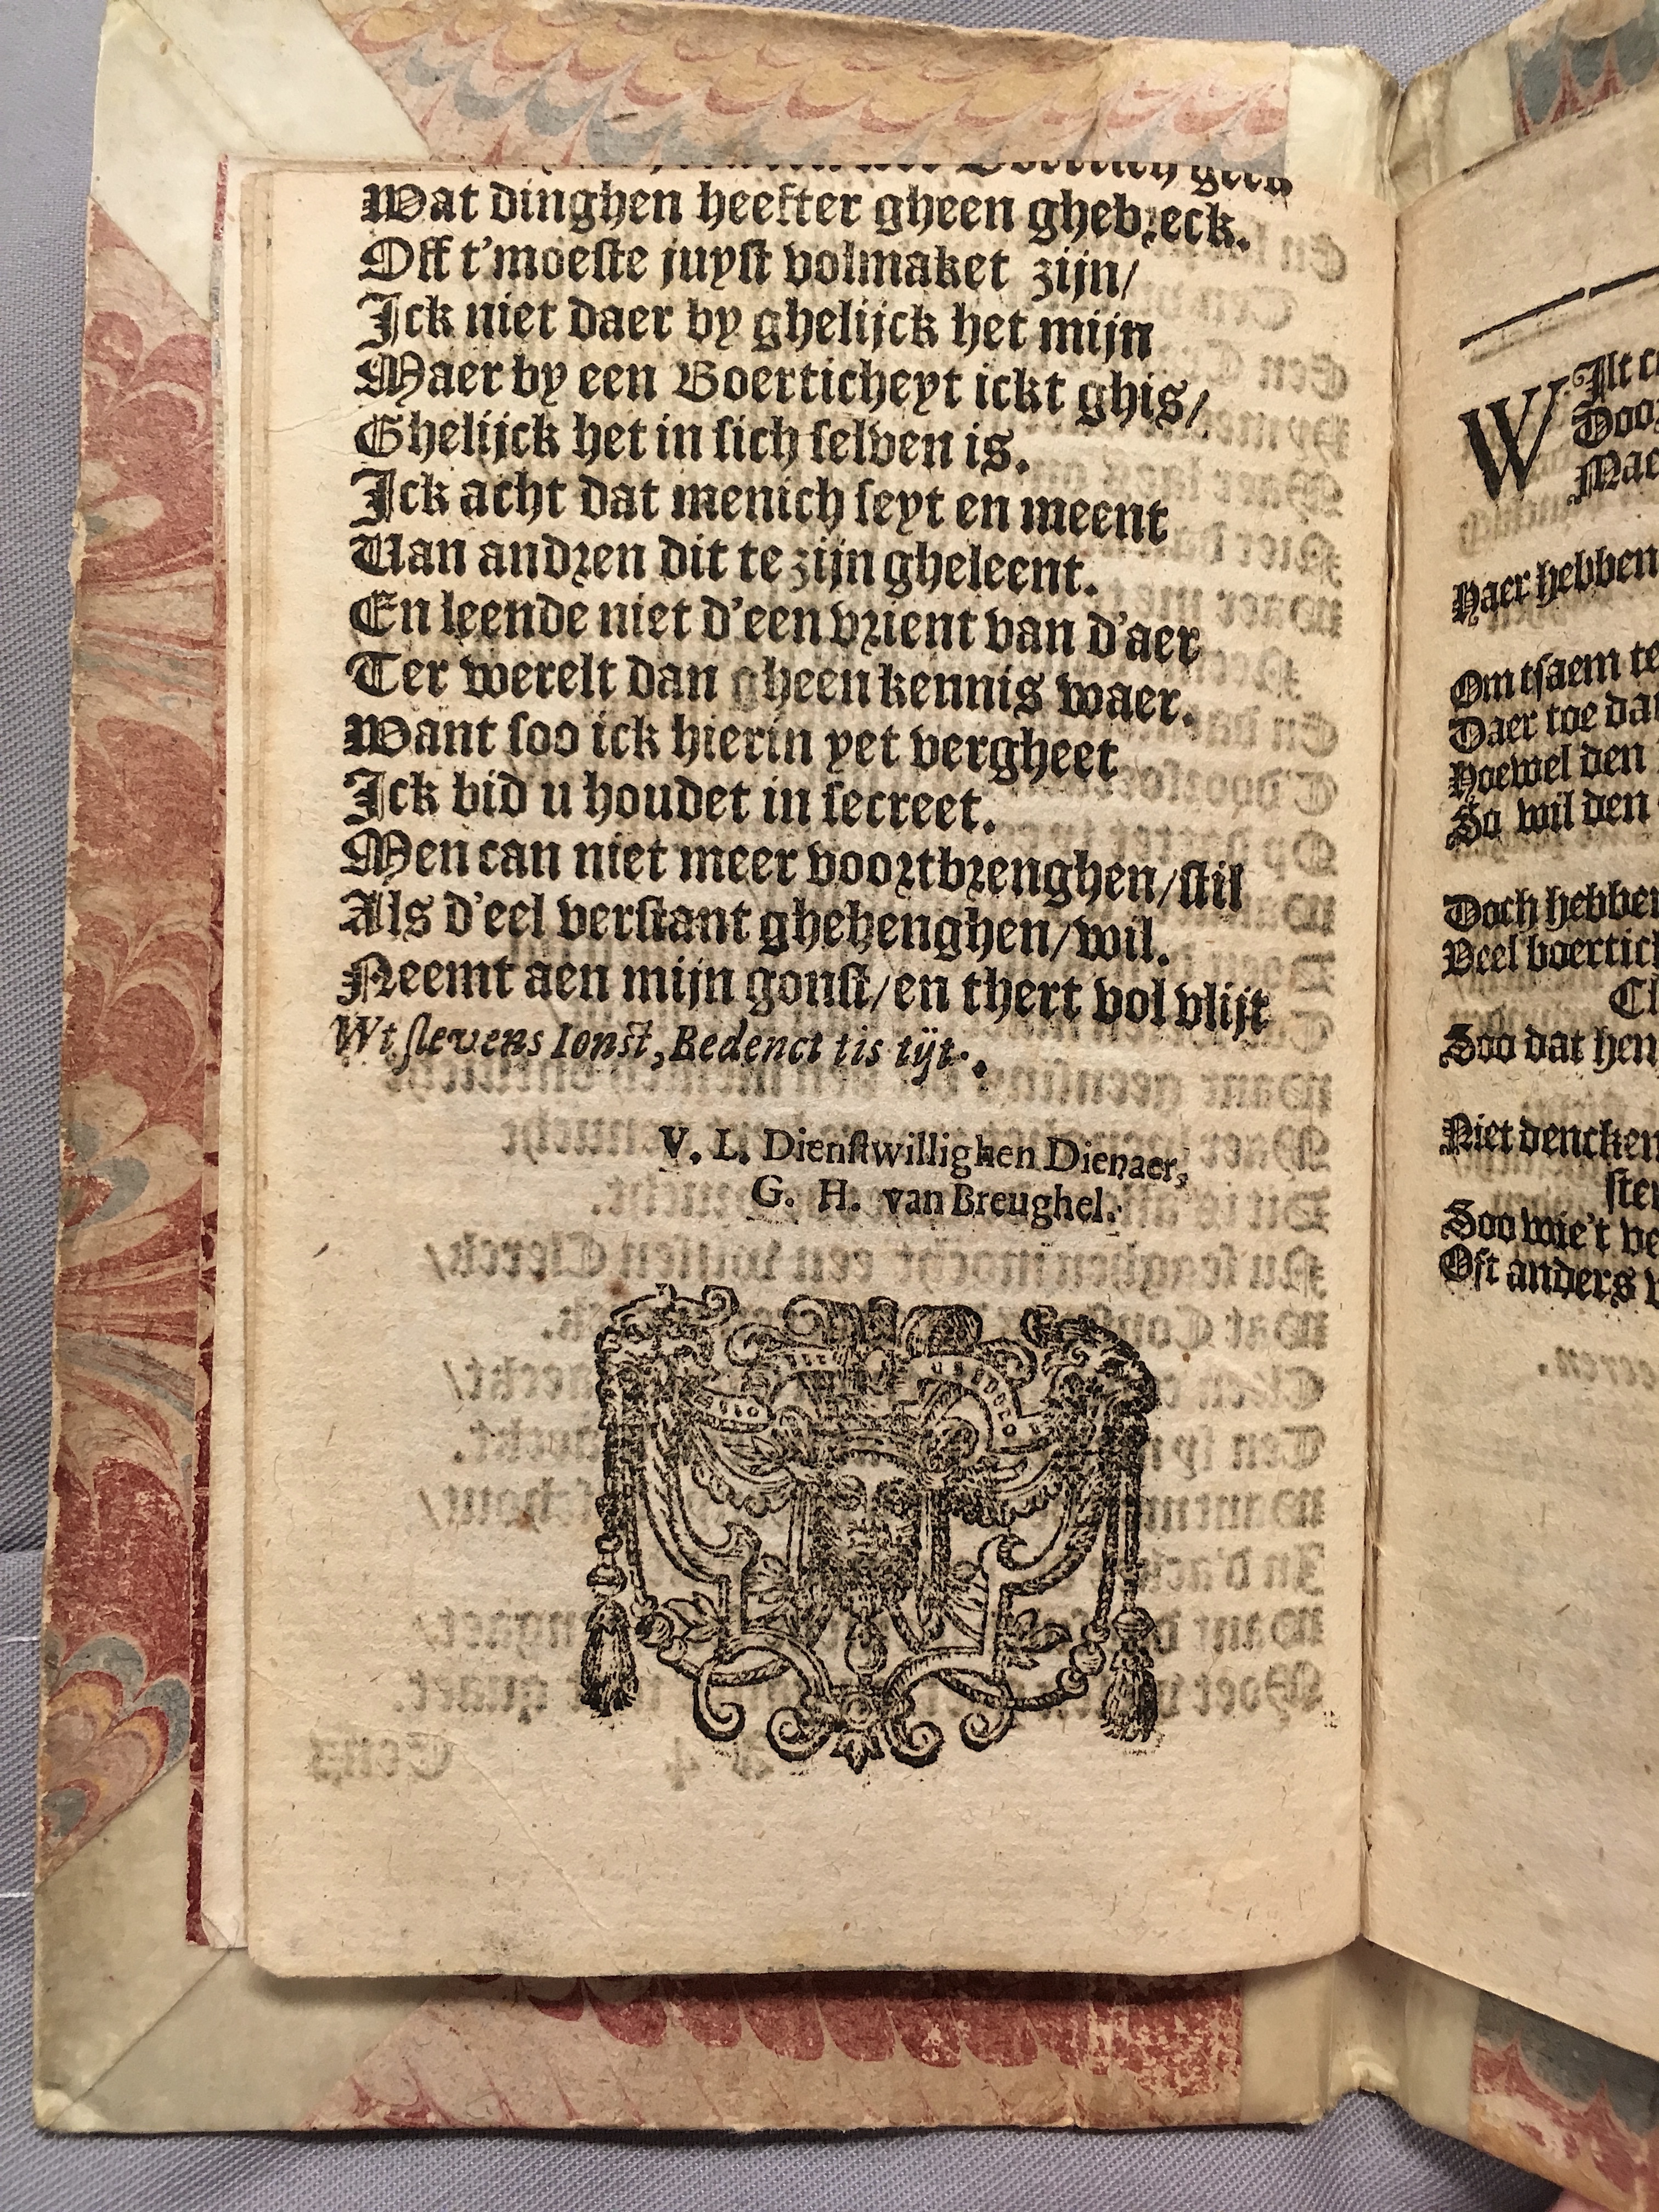 Boertich geck
Wat dinghen heefter gheen ghebreck.
Off t'moeste juyst volmaket zijn/
Ick niet daer by ghelijck het mijn
Maer by een Boerticheyt ickt ghis/
Ghelijck het in sich selven is.
Ick acht dat menich seyt en meent
Van andren dit te zijn gheleent.
En leende niet d'een vrient van d'aer
Ter werelt dan gheen kennis waer.
Want soo ick hierin yet vergheet
Ick bid u houdet in secreet.
Men can niet meer voortbrenghen/stil
Als d'eel verstant ghehenghen/wil.
Neemt aen mijn gonst/en thert vol vlijt
Wt slevens Ionst, Bedenct tis tijt.
V. L. Dienstwillighen Dienaer,
G. H. van Breughel.
Wilt
Door
Mae
Naer hebben
Om tsaem te
Daer toe dat
Hoewel den
So wil den
Doch hebben
Veel boertich
Cl
Soo dat hen
Niet dencken
ster
Soo wie't ve
Oft anders v